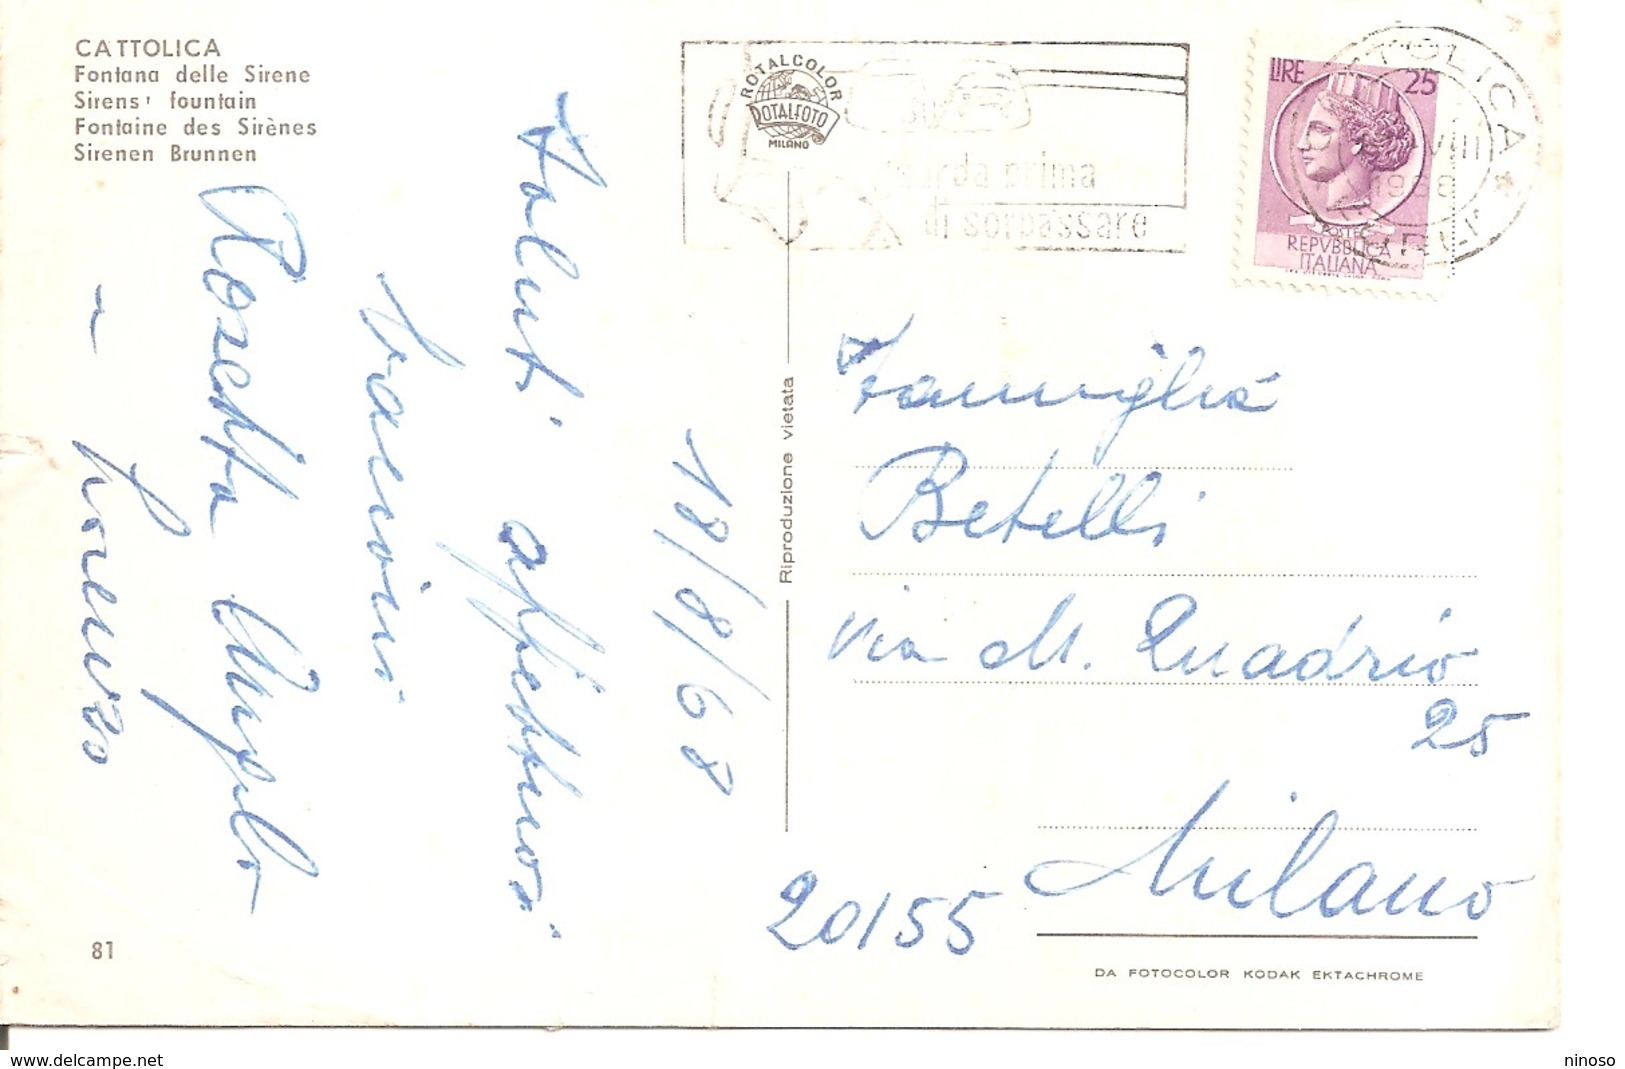 CATTOLICA
Fontana delle Sirene
Sirens' fountain
Fontaine des Sirènes
Sirenen Brunnen
ROTALCOLOR
ROTALFOTO
MILANO
guarda prima
di sorpassare
LIRE 25
POSTE
REPVBBLICA
ITALIANA
VIII
18/8/68
Saluti affettuosi
bacioni
Rosetta Angelo
- Lorenzo
Riproduzione vietata
Famiglia
Betelli
via M. Quadrio
25
20155 Milano
81
DA FOTOCOLOR KODAK EKTACHROME
www.delcampe.net
ninoso